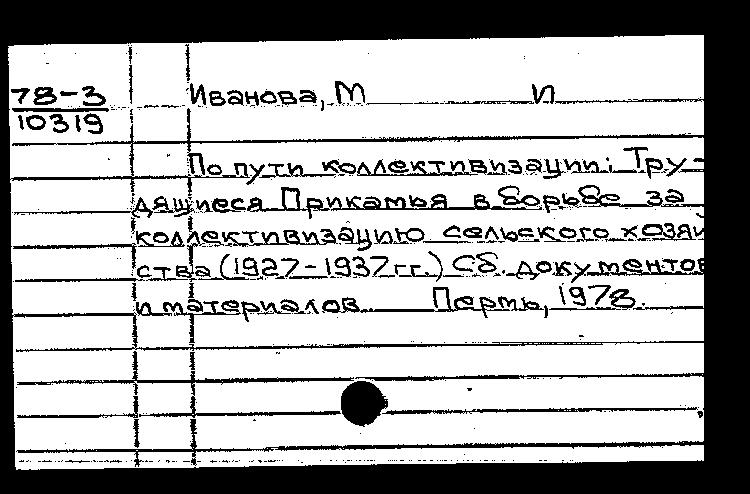 78-3
10319
Иванова, М И
По пути коллективизации: Тру-
дящиеся Прикамья в борьбе за
коллективизацию сельского хозяй
ства (1927-1937гг.) Сб. документов
и материалов. Пермь, 1978.